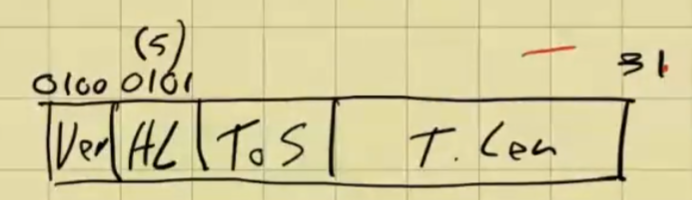 (5)
0100 0101 31
Ver HL ToS T. Len